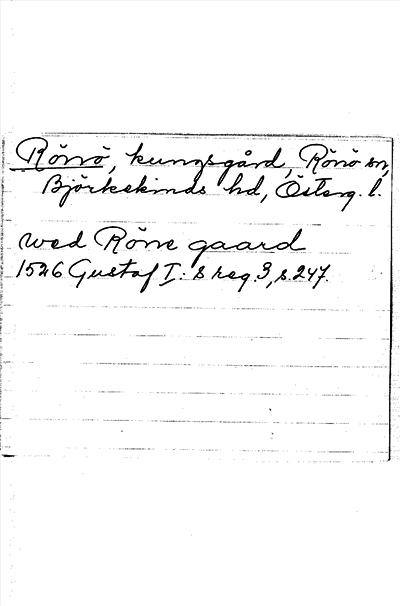 Rönö, kungsgård, Rönö sn,
Björkekinds hd, Österg. l.
wed Röne gaard
1526 Gustaf I:s reg. 3, s. 247.